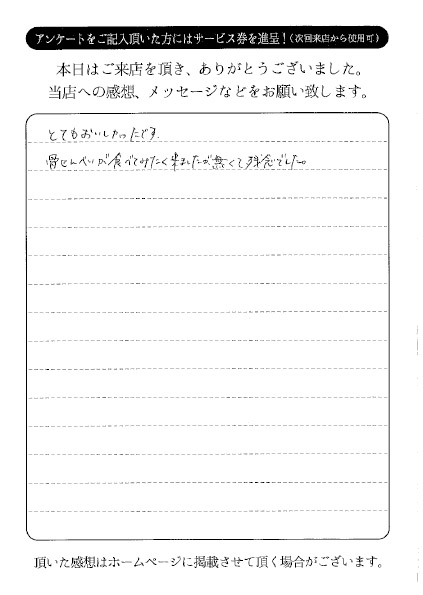 アンケートをご記入頂いた方にはサービス券を進呈！(次回来店から使用可)
本日はご来店を頂き、ありがとうございました。
当店への感想、メッセージなどをお願い致します。
とてもおいしかったです.
骨せんべいが食べてみたく来ましたが無くて残念でした。
頂いた感想はホームページに掲載させて頂く場合がございます。